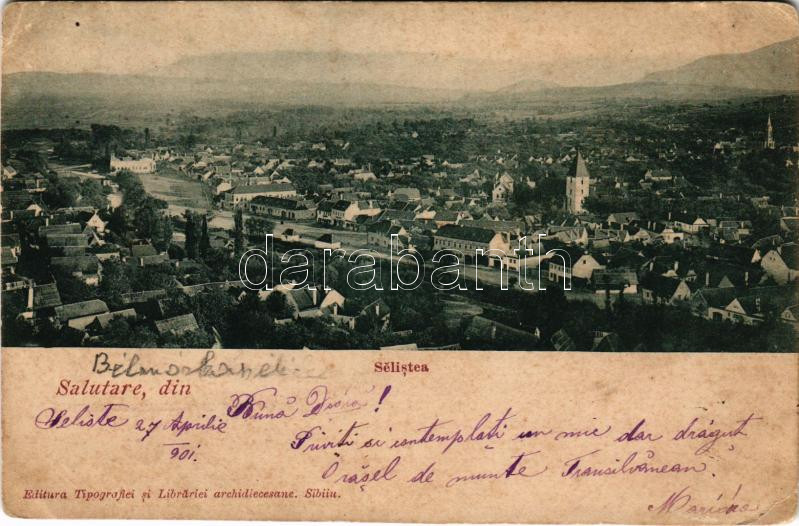 darabanth
Séliștea
Salutare, din
Seliste 27 Aprilie
901.
Bună Dioră!
Priviti si contemplați un mic dar drăguț
Orășel de munte Transilvănean.
Editura Tipografiei și Librăriei archidiecesane. Sibiiu.